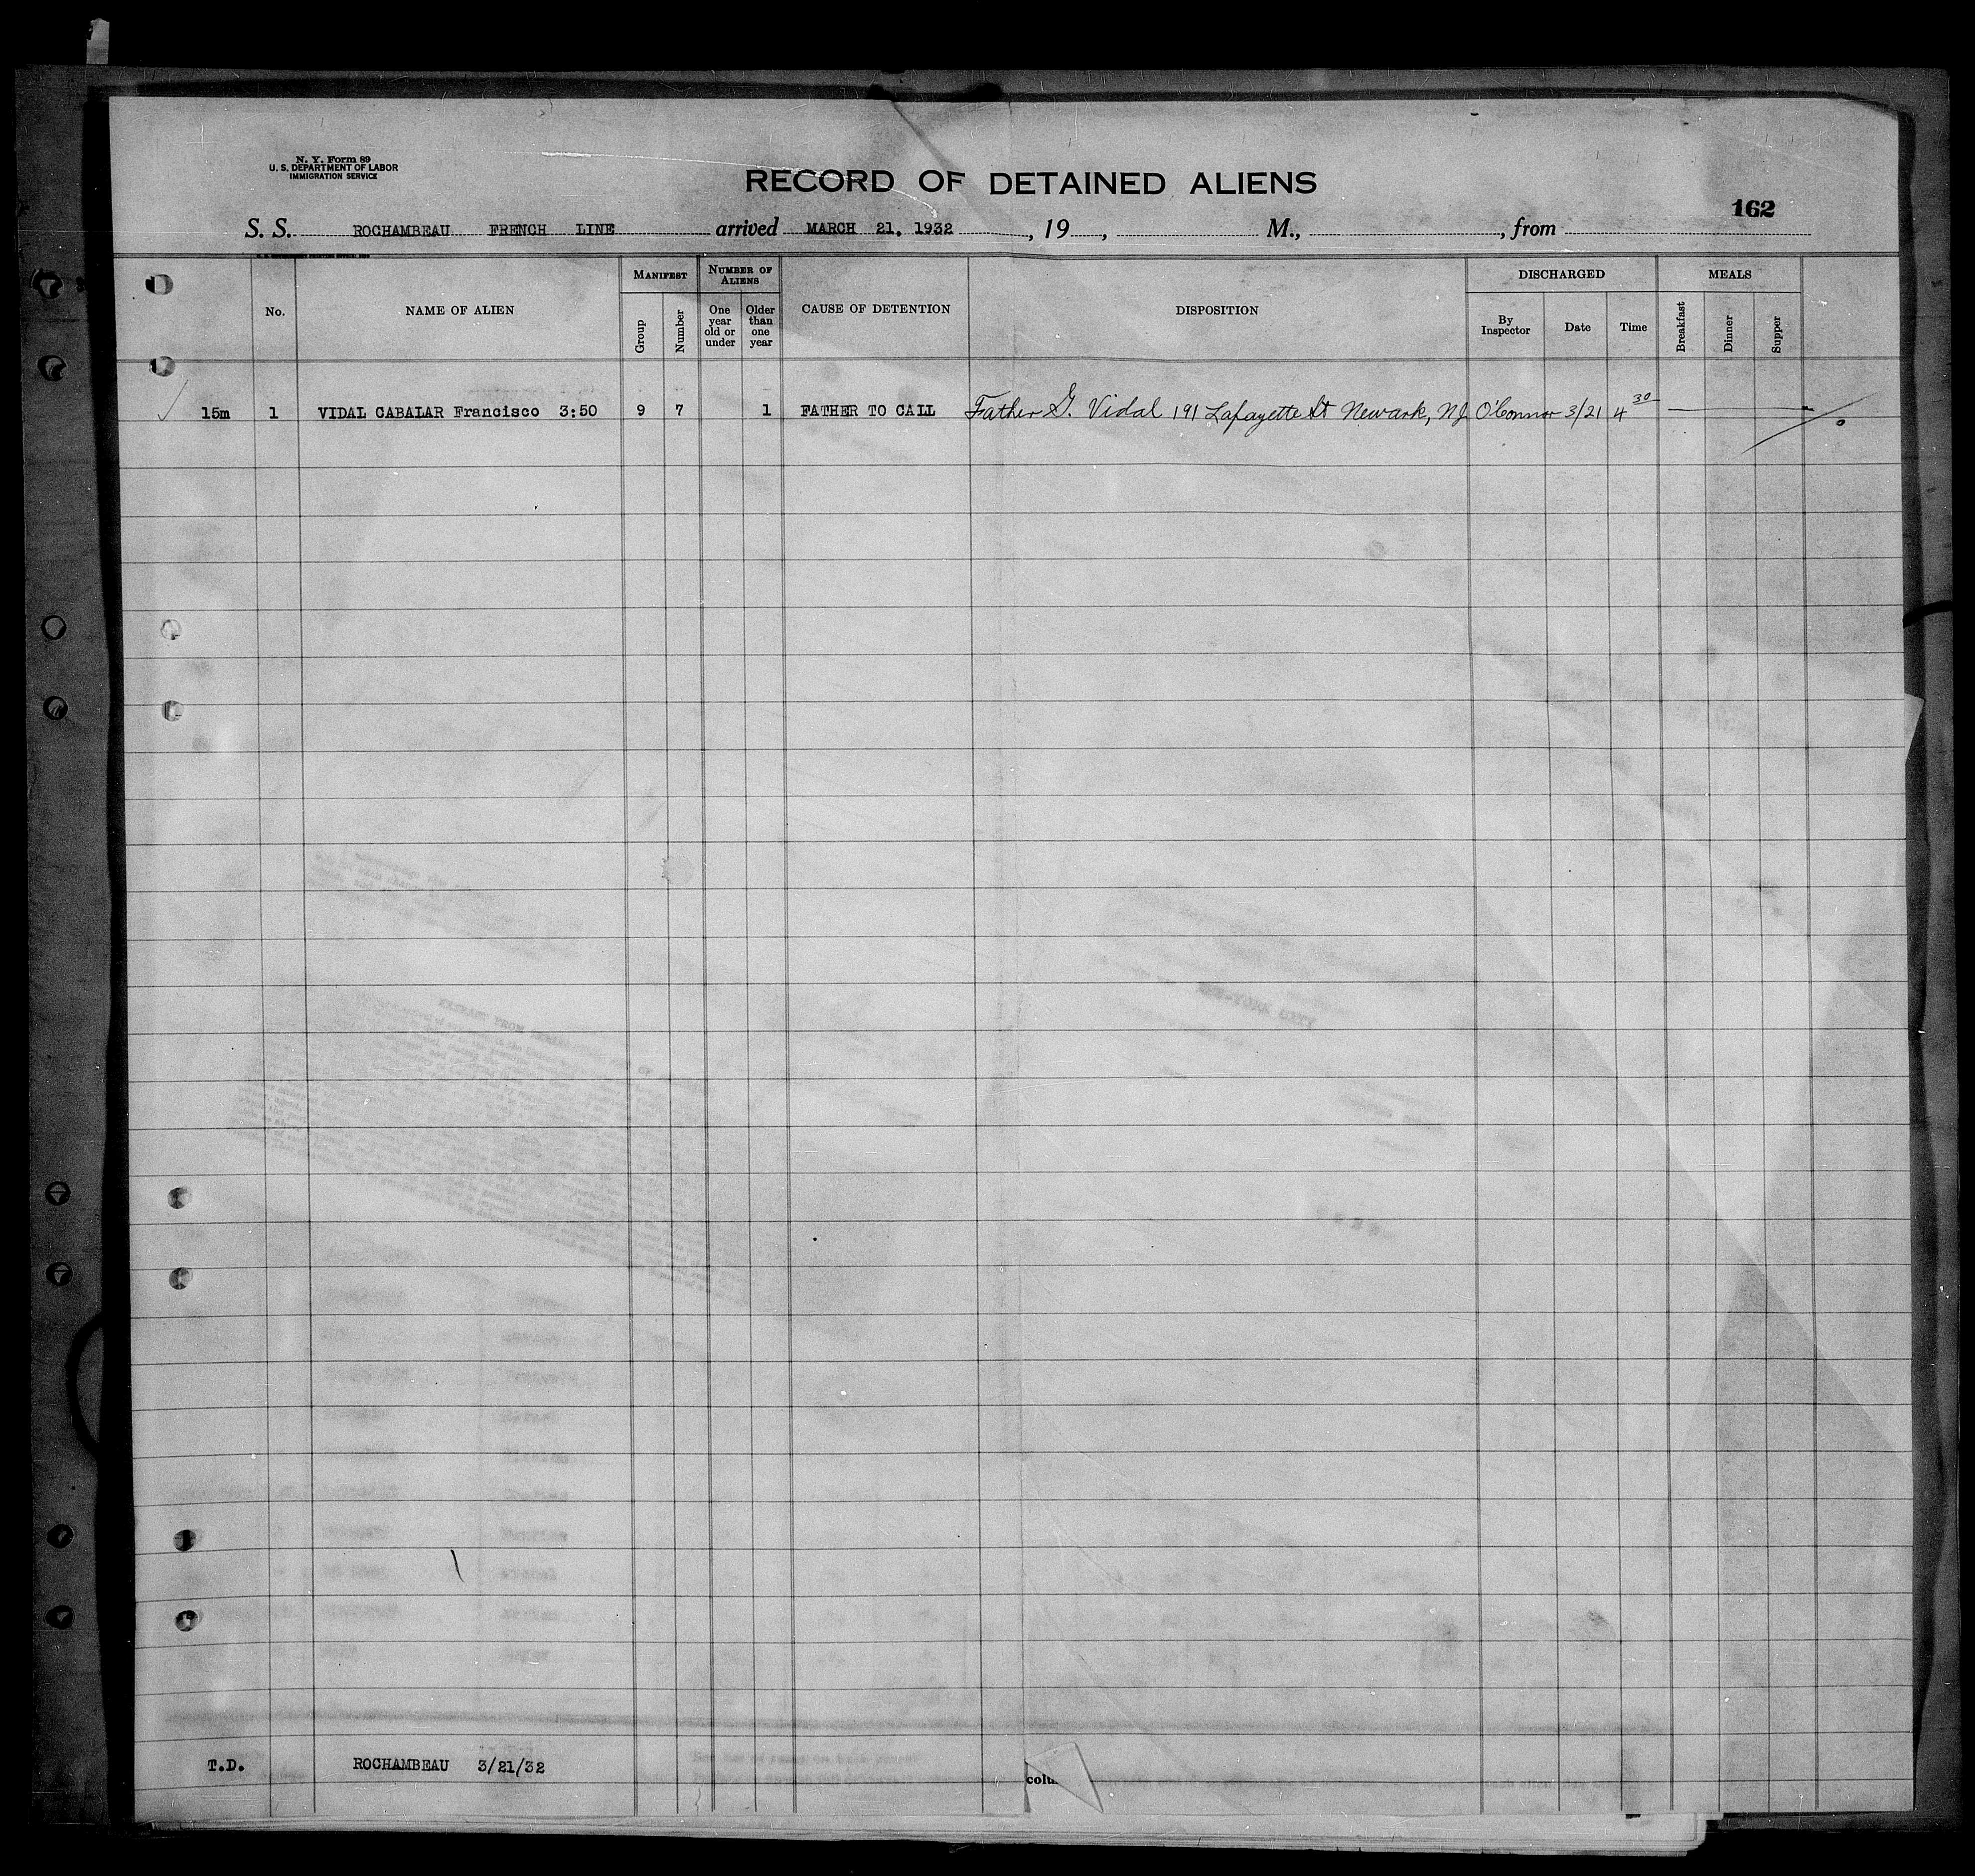 N. Y. Form 89
U. S. DEPARTMENT OF LABOR
IMMIGRATION SERVICE
RECORD OF DETAINED ALIENS
162
S. S. ROCHAMBEAU FRENCH LINE arrived MARCH 21, 1932, 19, M., , from
No. NAME OF ALIEN MANIFEST NUMBER OF ALIENS CAUSE OF DETENTION DISPOSITION DISCHARGED MEALS
Group Number One year old or under Older than one year By Inspector Date Time Breakfast Dinner Supper
15m 1 VIDAL CABALAR Francisco 3:50 9 7 1 FATHER TO CALL Father G. Vidal 191 Lafayette St Newark, NJ O'Connor 3/21 4 30
T.D. ROCHAMBEAU 3/21/32